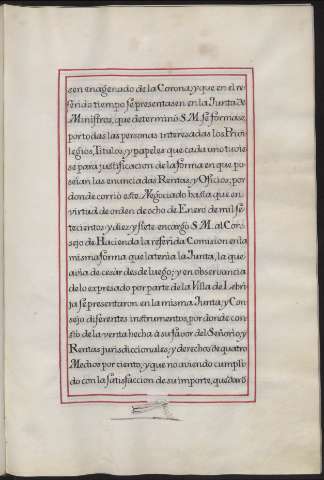 sen enagenado de la Corona, y que en el re
ferido tiempo se presentasen en la Junta de
Ministros, que determinó S. M. se formase,
por todas las personas interesadas los Privi
legios, Titulos, y papeles que cada uno tuvie
se para justificacion de la forma en que po
seían las enunciadas Rentas, y Oficios; por
donde corrió este Negociado hasta que en
virtud de orden de ocho de Enero de mil se
tecientos y diez y siete encargó S. M. al Con
sejo de Hacienda la referida Comision en la
misma forma que la tenia la Junta, la que
avia de cesar desde luego; y en observancia
de lo expresado por parte de la Villa de Lebri
ja se presentaron en la misma Junta, y Con
sejo diferentes instrumentos, por donde con
stó de la venta hecha à su favor del Señorio, y
Rentas jurisdiccionales, y derechos de quatro
Medios por ciento, y que no aviendo cumpli
do con la satisfaccion de su importe, quedaró